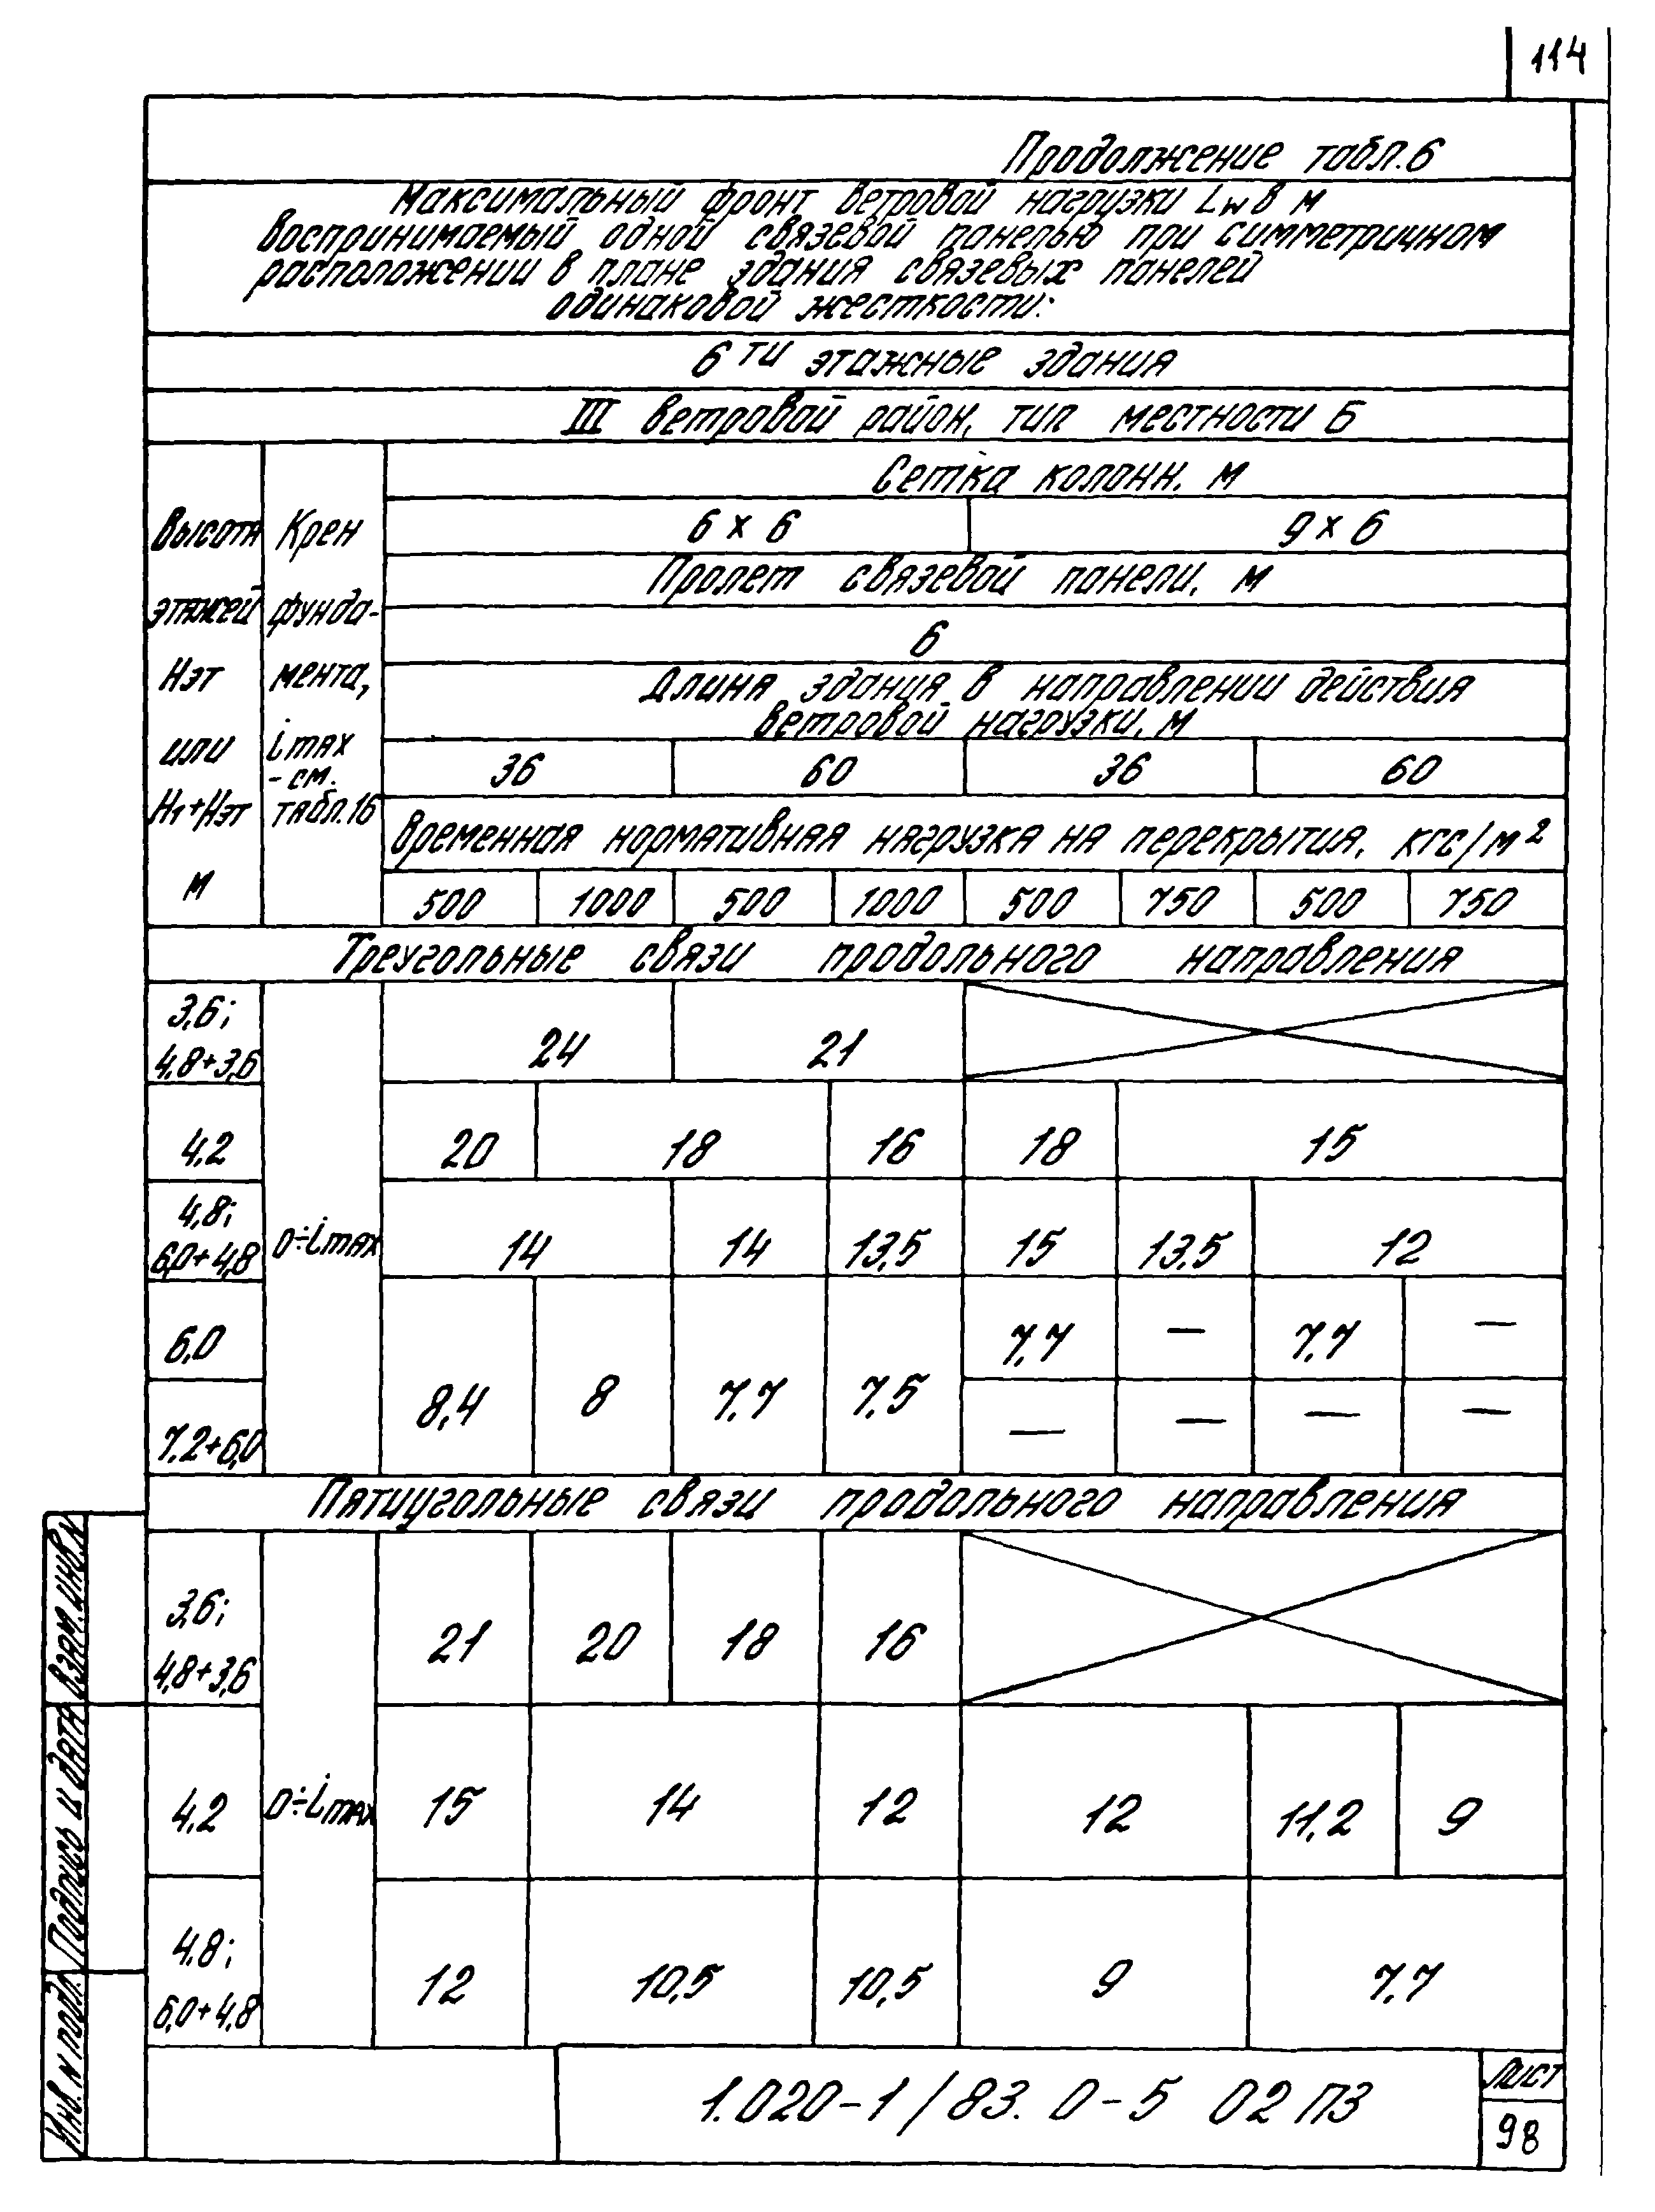 114
Продолжение табл.6
Максимальный фронт ветровой нагрузки Lw в м
воспринимаемый одной связевой панелью при симметричном
расположении в плане здания связевых панелей
одинаковой жесткости:
6ти этажные здания
III ветровой район, тип местности Б
Высота этажей Нэт или Н1+Нэт м
Крен фунда-мента, imax - см. табл.16
Сетка колонн, м
6 x 6 9 x 6
Пролет связевой панели, м
6
Длина здания в направлении действия
ветровой нагрузки, м
36 60 36 60
Временная нормативная нагрузка на перекрытия, кгс/м²
500 1000 500 1000 500 750 500 750
Треугольные связи продольного направления
3,6;
4,8+3,6 24 21
4,2 20 18 16 18 15
4,8;
6,0+4,8 0÷imax 14 14 13,5 15 13,5 12
6,0 7,7 — 7,7 —
8,4 8 7,7 7,5
7,2+6,0 — — — —
Пятиугольные связи продольного направления
3,6;
4,8+3,6 21 20 18 16
4,2 0÷imax 15 14 12 12 11,2 9
4,8;
6,0+4,8 12 10,5 10,5 9 7,7
Инв. N подл. Подпись и дата Взам. инв. N
1.020-1/83. 0-5 02 ПЗ
Лист
98